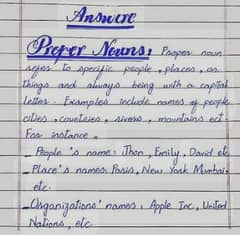 Answere
Proper Nouns: Proper noun
refer to specific people, places, or
things and always being with a capital
letter. Examples include names of people
cities, countries, rivers, mountains ect.
For instance.
_ People's name: Jhon, Emily, David etc
_ Place's names: Paris, New York Mumbai,
etc.
_ Organizations' names: Apple Inc, United
Nations, etc